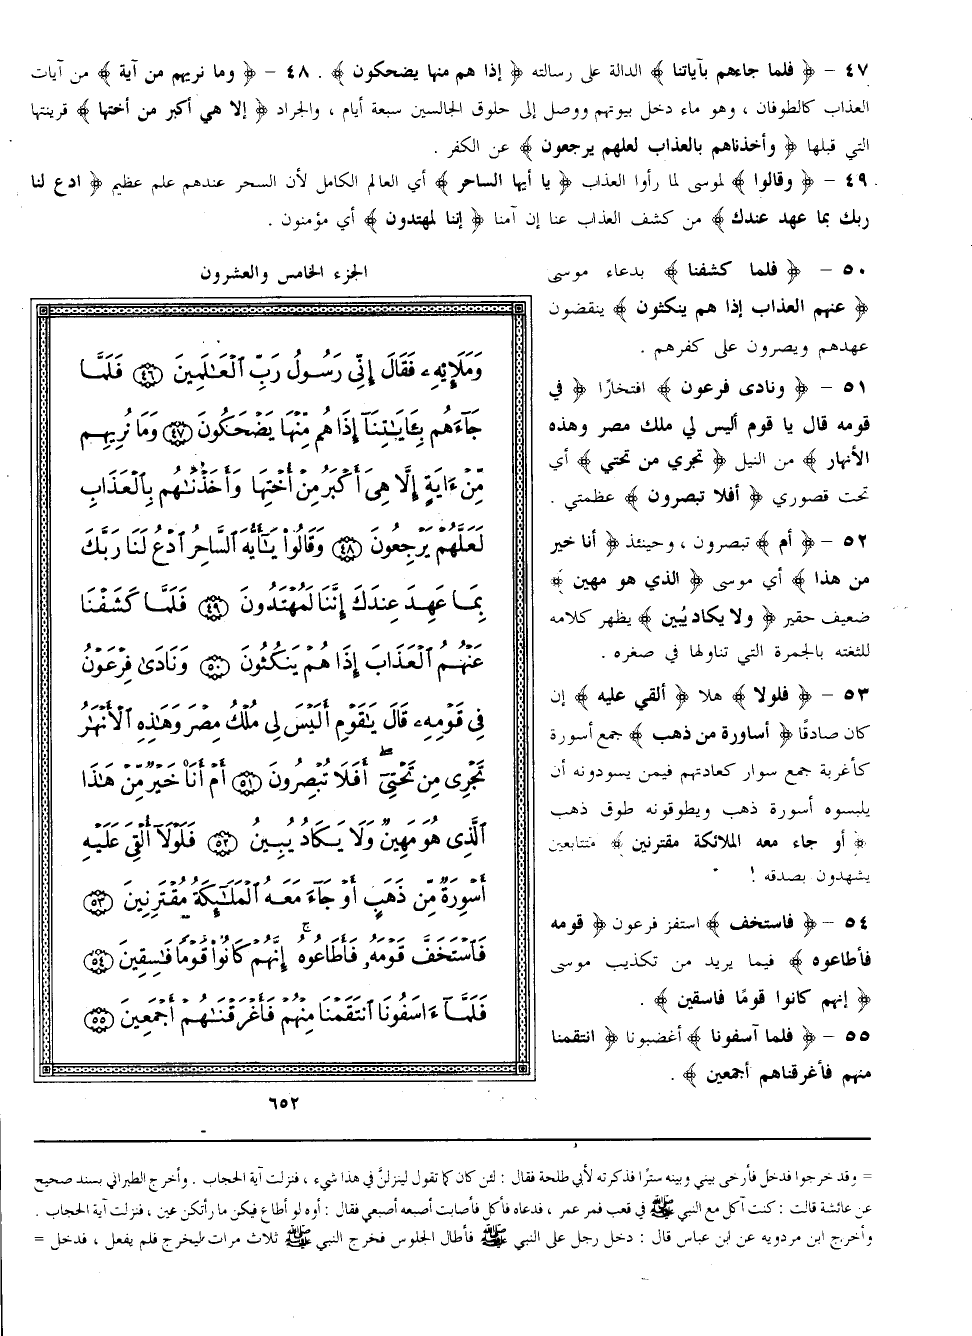 ٤٧ – ﴿ فلما جاءهم بآياتنا ﴾ الدالة على رسالته ﴿ إذا هم منها يضحكون ﴾ . ٤٨ – ﴿ وما نريهم من آية ﴾ من آيات
العذاب كالطوفان ، وهو ماء دخل بيوتهم ووصل إلى حلوق الجالسين سبعة أيام ، والجراد ﴿ إلا هي أكبر من أختها ﴾ قرينتها
التي قبلها ﴿ وأخذناهم بالعذاب لعلهم يرجعون ﴾ عن الكفر .
٤٩ – ﴿ وقالوا ﴾ لموسى لما رأوا العذاب ﴿ يا أيها الساحر ﴾ أي العالم الكامل لأن السحر عندهم علم عظيم ﴿ ادع لنا
ربك بما عهد عندك ﴾ من كشف العذاب عنا إن آمنا ﴿ إننا لمهتدون ﴾ أي مؤمنون .
٥٠ – ﴿ فلما كشفنا ﴾ بدعاء موسى
﴿ عنهم العذاب إذا هم ينكثون ﴾ ينقضون
عهدهم ويصرون على كفرهم .
٥١ – ﴿ ونادى فرعون ﴾ افتخارًا ﴿ في
قومه قال يا قوم أليس لي ملك مصر وهذه
الأنهار ﴾ من النيل ﴿ تجري من تحتي ﴾ أي
تحت قصوري ﴿ أفلا تبصرون ﴾ عظمتي .
٥٢ – ﴿ أم ﴾ تبصرون ، وحينئذ ﴿ أنا خير
من هذا ﴾ أي موسى ﴿ الذي هو مهين ﴾
ضعيف حقير ﴿ ولا يكاد يُبين ﴾ يظهر كلامه
للثغته بالجمرة التي تناولها في صغره .
٥٣ – ﴿ فلولا ﴾ هلا ﴿ ألقي عليه ﴾ إن
كان صادقًا ﴿ أساورة من ذهب ﴾ جمع أسورة
كأغربة جمع سوار كعادتهم فيمن يسودونه أن
يلبسوه أسورة ذهب ويطوقونه طوق ذهب
﴿ أو جاء معه الملائكة مقترنين ﴾ متتابعين
يشهدون بصدقه !
٥٤ – ﴿ فاستخف ﴾ استفز فرعون ﴿ قومه
فأطاعوه ﴾ فيما يريد من تكذيب موسى
﴿ إنهم كانوا قومًا فاسقين ﴾ .
٥٥ – ﴿ فلما آسفونا ﴾ أغضبونا ﴿ انتقمنا
منهم فأغرقناهم أجمعين ﴾ .
الجزء الخامس والعشرون
وَمَلَإِيْهِۦ فَقَالَ إِنِّى رَسُولُ رَبِّ ٱلْعَٰلَمِينَ ٤٦ فَلَمَّا
جَآءَهُم بِـَٔايَٰتِنَآ إِذَا هُم مِّنْهَا يَضْحَكُونَ ٤٧ وَمَا نُرِيهِم
مِّنْ ءَايَةٍ إِلَّا هِىَ أَكْبَرُ مِنْ أُخْتِهَا وَأَخَذْنَٰهُم بِٱلْعَذَابِ
لَعَلَّهُمْ يَرْجِعُونَ ٤٨ وَقَالُوا۟ يَٰٓأَيُّهَ ٱلسَّاحِرُ ٱدْعُ لَنَا رَبَّكَ
بِمَا عَهِدَ عِندَكَ إِنَّنَا لَمُهْتَدُونَ ٤٩ فَلَمَّا كَشَفْنَا
عَنْهُمُ ٱلْعَذَابَ إِذَا هُمْ يَنكُثُونَ ٥٠ وَنَادَىٰ فِرْعَوْنُ
فِى قَوْمِهِۦ قَالَ يَٰقَوْمِ أَلَيْسَ لِى مُلْكُ مِصْرَ وَهَٰذِهِ ٱلْأَنْهَٰرُ
تَجْرِى مِن تَحْتِىٓ أَفَلَا تُبْصِرُونَ ٥١ أَمْ أَنَا۠ خَيْرٌ مِّنْ هَٰذَا
ٱلَّذِى هُوَ مَهِينٌ وَلَا يَكَادُ يُبِينُ ٥٢ فَلَوْلَآ أُلْقِىَ عَلَيْهِ
أَسْوِرَةٌ مِّن ذَهَبٍ أَوْ جَآءَ مَعَهُ ٱلْمَلَٰٓئِكَةُ مُقْتَرِنِينَ ٥٣
فَٱسْتَخَفَّ قَوْمَهُۥ فَأَطَاعُوهُ ۚ إِنَّهُمْ كَانُوا۟ قَوْمًا فَٰسِقِينَ ٥٤
فَلَمَّآ ءَاسَفُونَا ٱنتَقَمْنَا مِنْهُمْ فَأَغْرَقْنَٰهُمْ أَجْمَعِينَ ٥٥
٦٥٢
= وقد خرجوا فدخل فأرخى بيني وبينه سترًا فذكرته لأبي طلحة فقال : لئن كان كما تقول لينزلنَّ في هذا شيء ، فنزلت آية الحجاب . وأخرج الطبراني بسند صحيح
عن عائشة قالت : كنت آكل مع النبي ﷺ في قعب فمر عمر ، فدعاه فأكل فأصابت أصبعه أصبعي فقال : أوه لو أطاع فيكن ما رأتكن عين ، فنزلت آية الحجاب .
وأخرج ابن مردويه عن ابن عباس قال : دخل رجل على النبي ﷺ فأطال الجلوس فخرج النبي ﷺ ثلاث مرات ليخرج فلم يفعل ، فدخل =